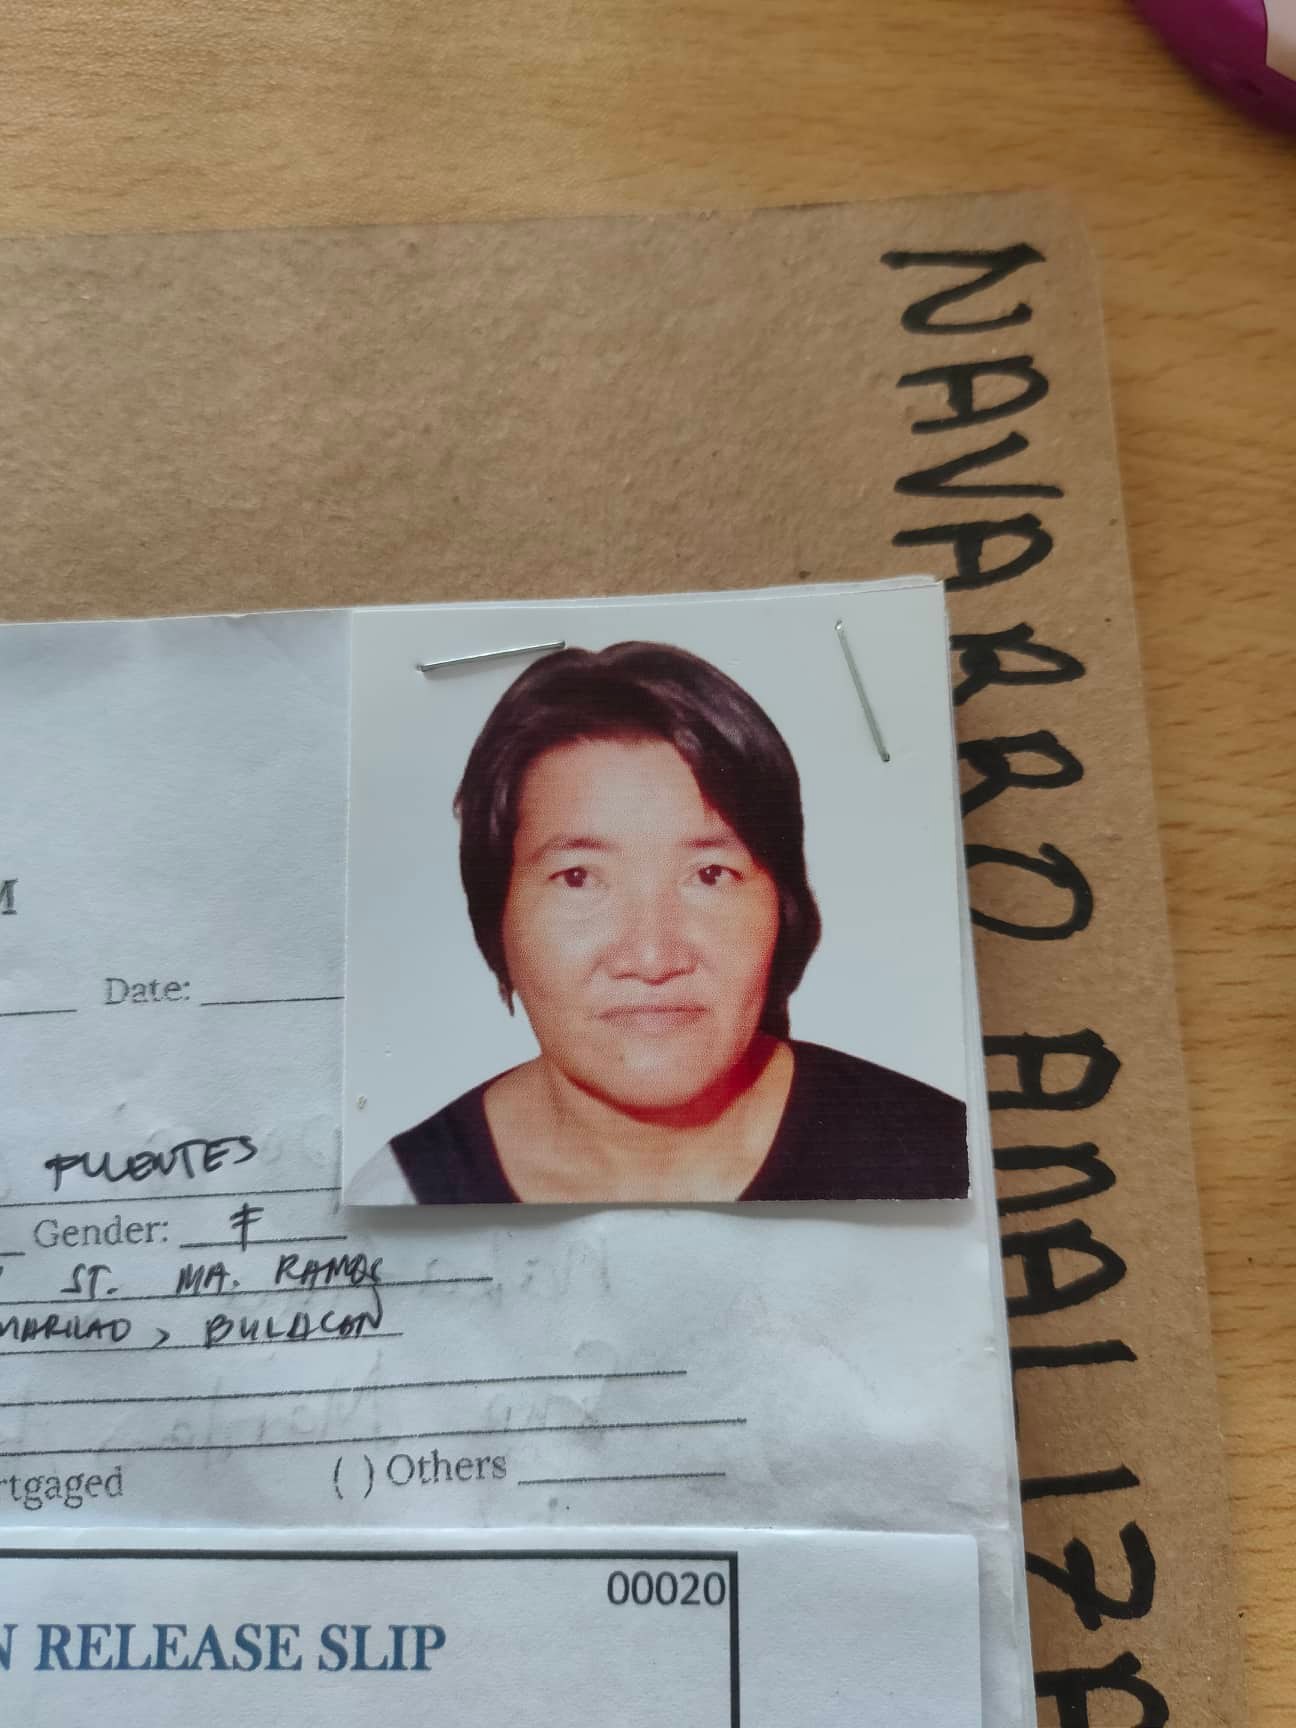 NAVARRO ANALIZA
M
Date:
FUENTES
Gender: F
ST. MA. RAMOS
MARILAO, BULACAN
rtgaged ( ) Others
00020
N RELEASE SLIP